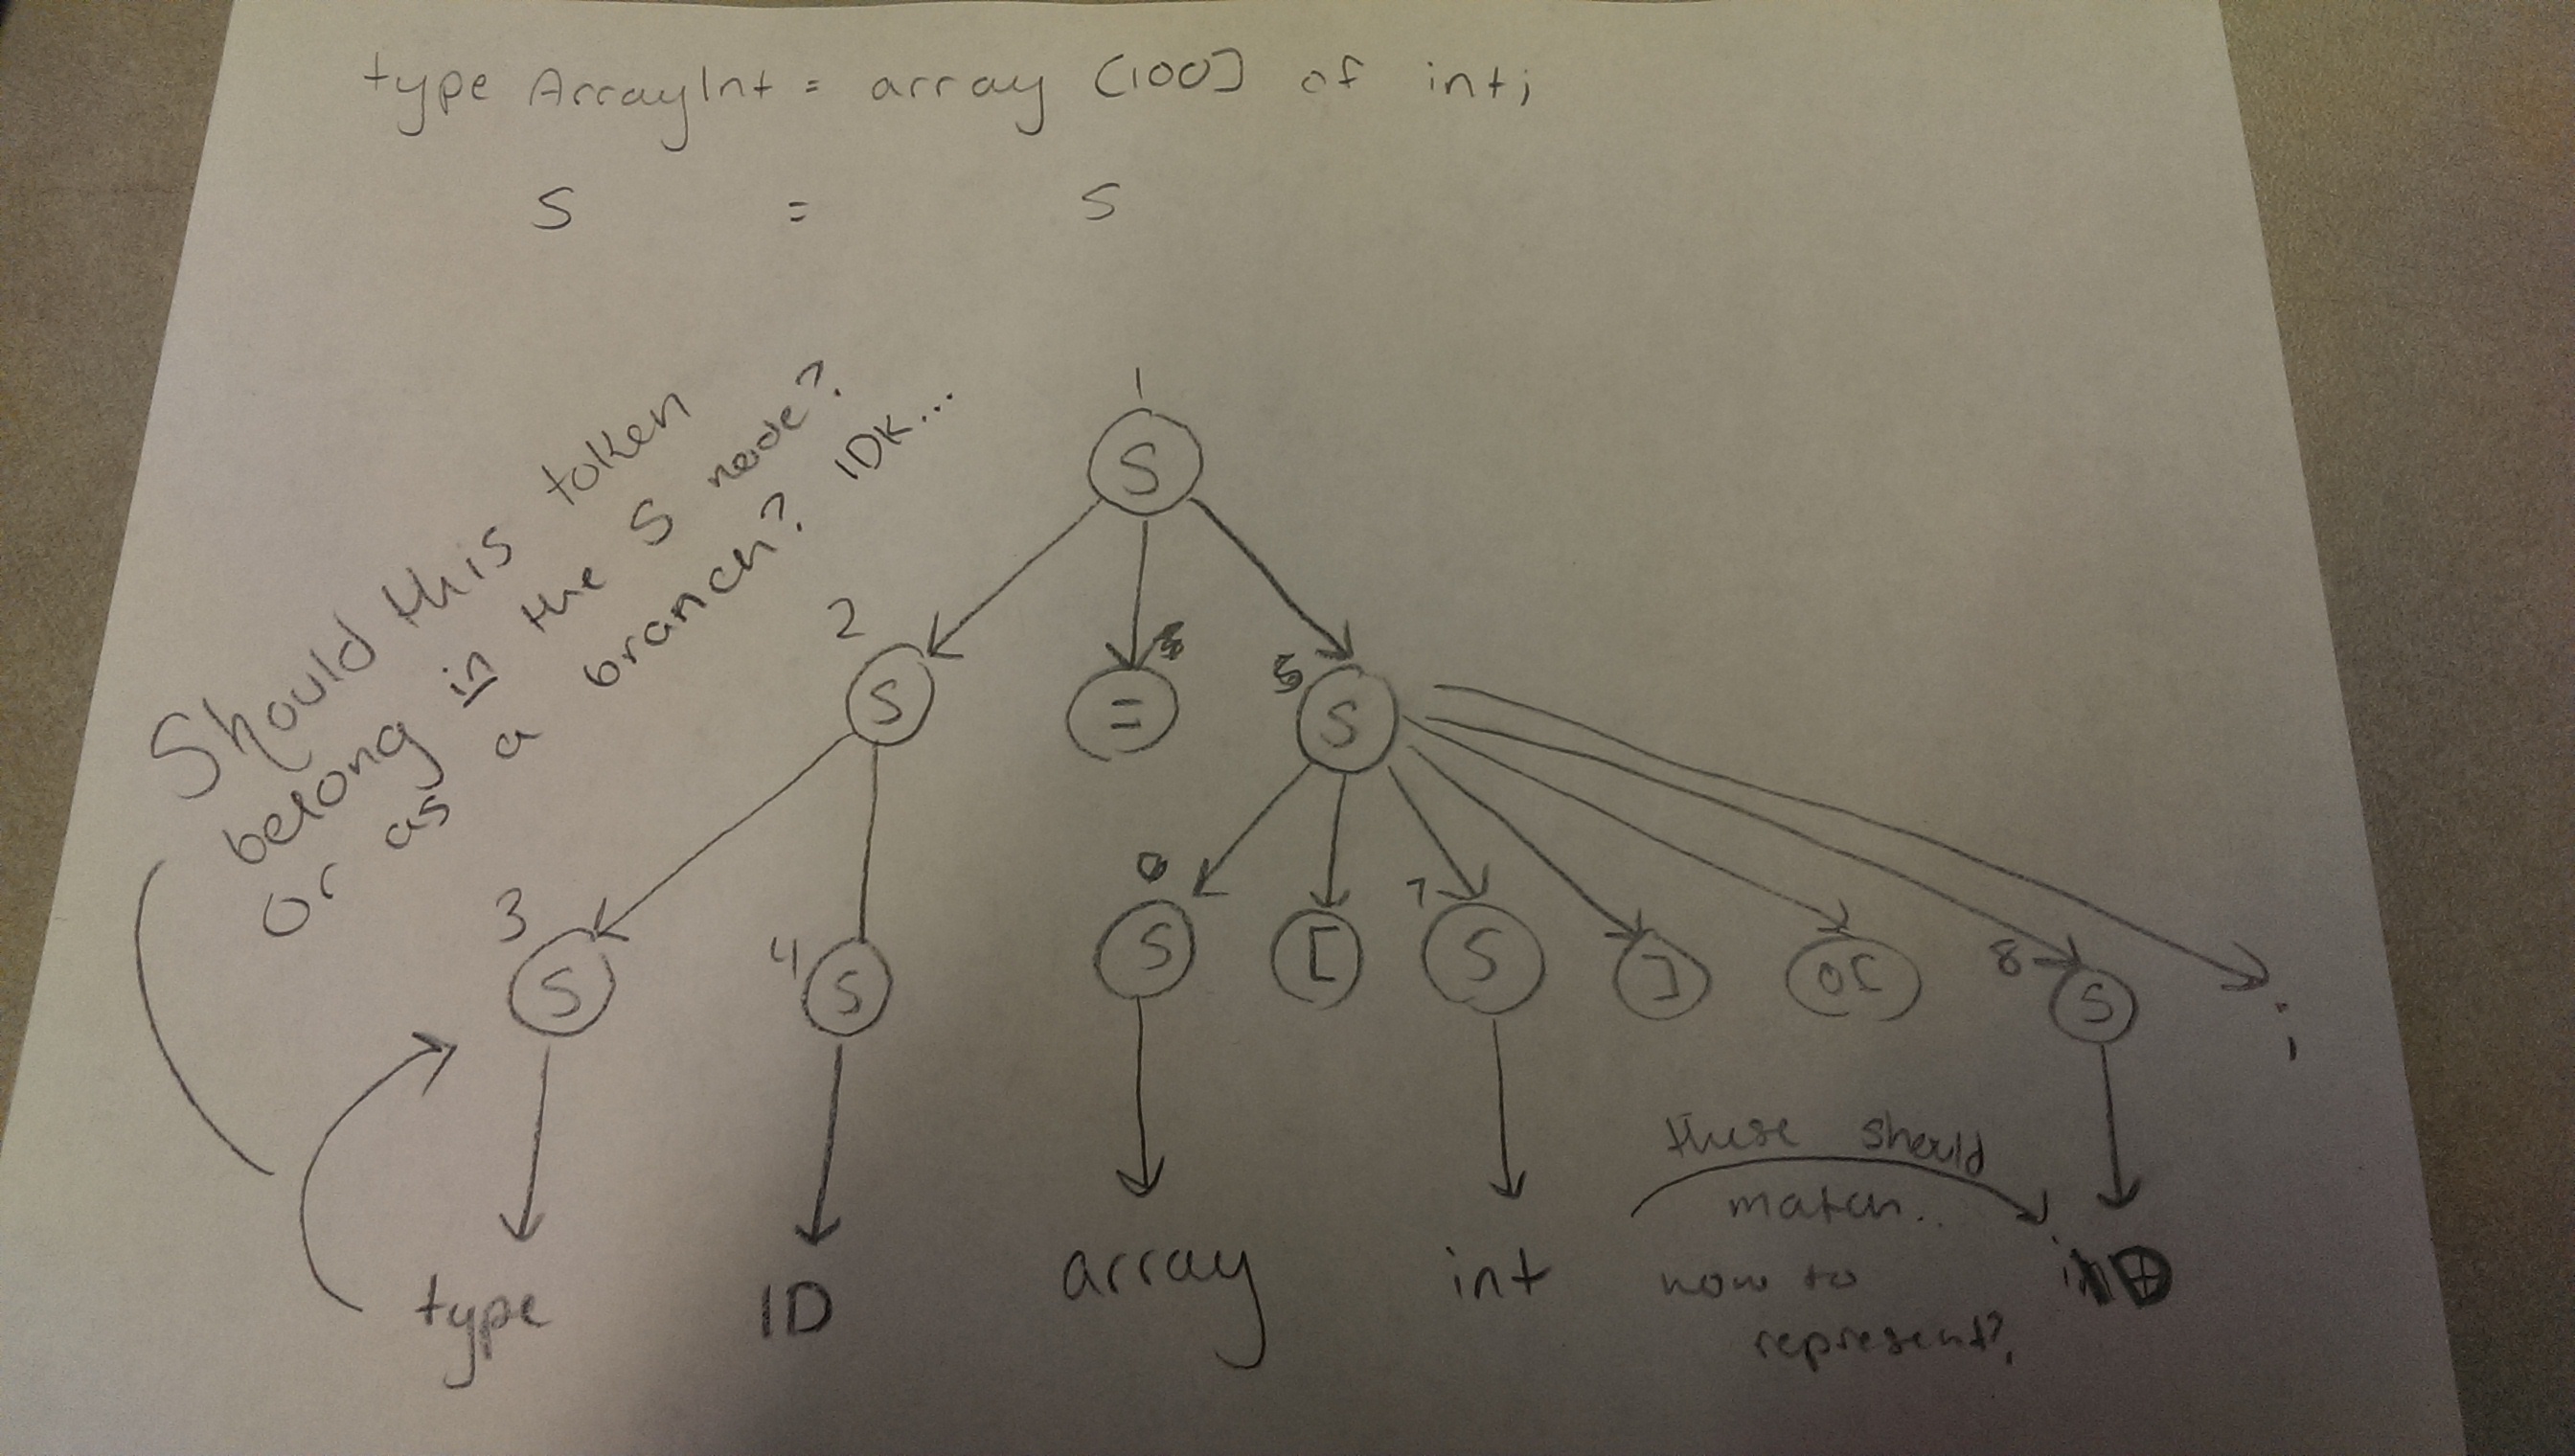 type ArrayInt = array [100] of int;
S = S
Should this token
belong in the S node?
or as a branch? IDK...
1
S
2
S
=
5
S
3
S
4
S
6
S
[
7
S
]
of
8
S
;
type
ID
array
int
these should
match..
how to
represent?
ID